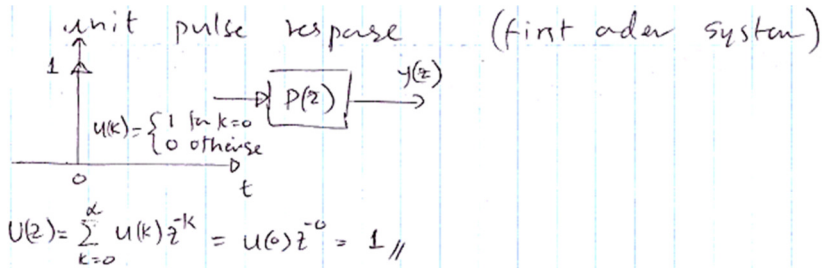 unit pulse response (first order system)
1
y(z)
P(z)
u(k) = { 1 for k=0
0 otherwise
0
t
U(z) = ∑_{k=0}^{∞} u(k) z^{-k} = u(0) z^{-0} = 1 //